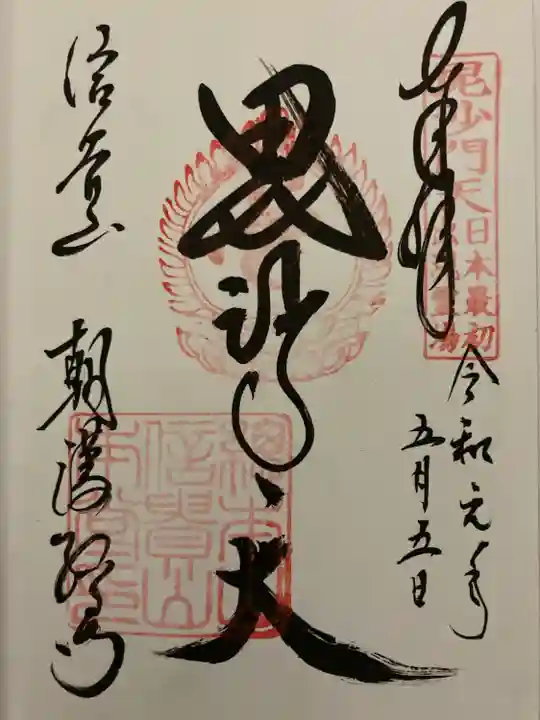 奉拝
令和元年
五月五日
毘沙門天
日本最初
毘沙門天
信貴山
朝護孫子寺
信貴山